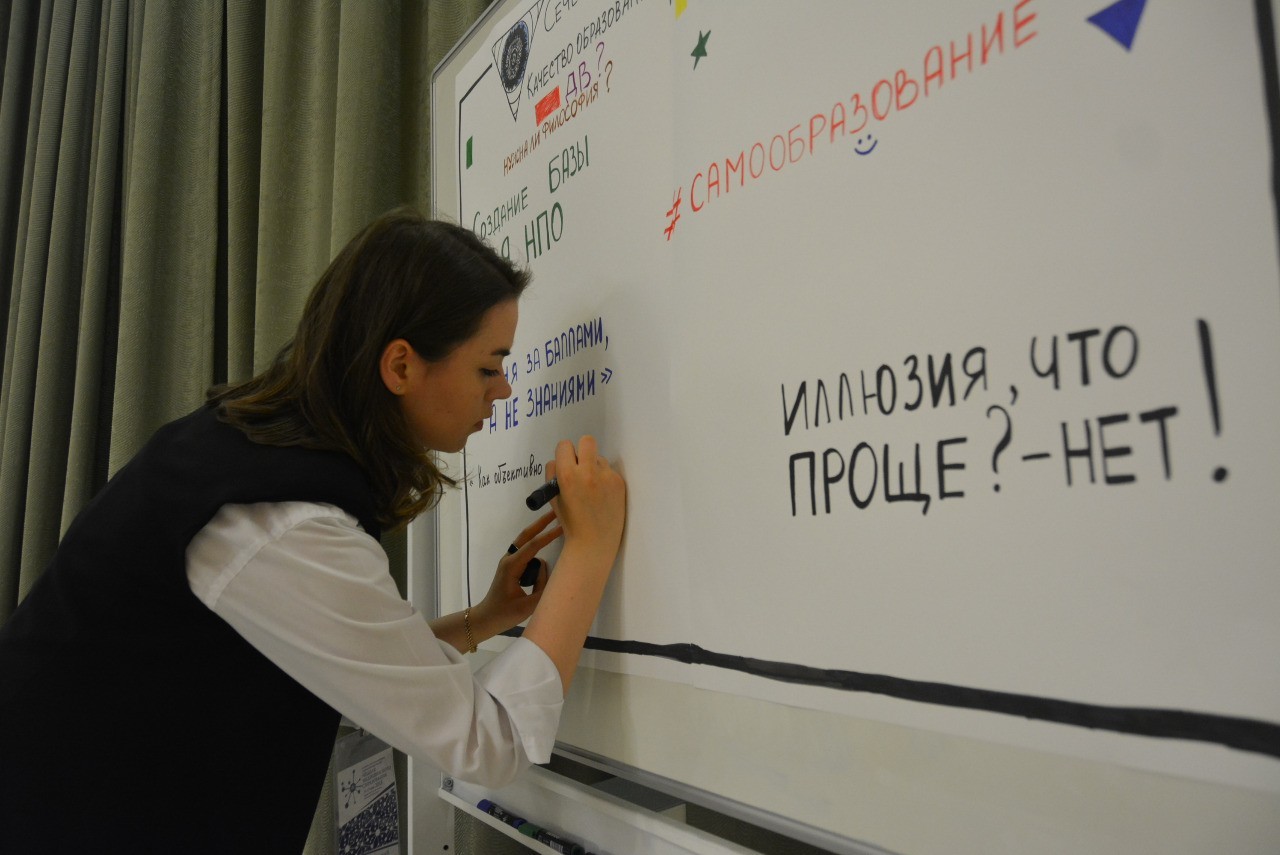 КАЧЕСТВО ОБРАЗОВАН
ДВ?
НУЖНА ЛИ ФИЛОСОФИЯ?
СОЗДАНИЕ БАЗЫ
НПО
ЗА БАЛЛАМИ,
А НЕ ЗНАНИЯМИ»
Как объективно
#САМООБРАЗОВАНИЕ
ИЛЛЮЗИЯ, ЧТО
ПРОЩЕ? - НЕТ!